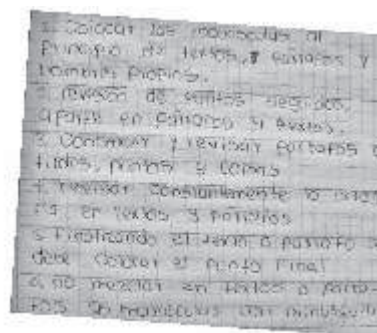 1. Colocar las mayúsculas al
principio de textos, párrafos y
nombres propios.
2. revisión de puntos seguidos,
aparte en párrafos y textos.
3. Conservar y revisar párrafos
puntos y comas
4. revisar constantemente la
en textos y párrafos
5. Finalizando el texto o párrafo se
debe colocar el punto Final
6. no mezclar en textos o párra-
fos las mayúsculas con minúsculas